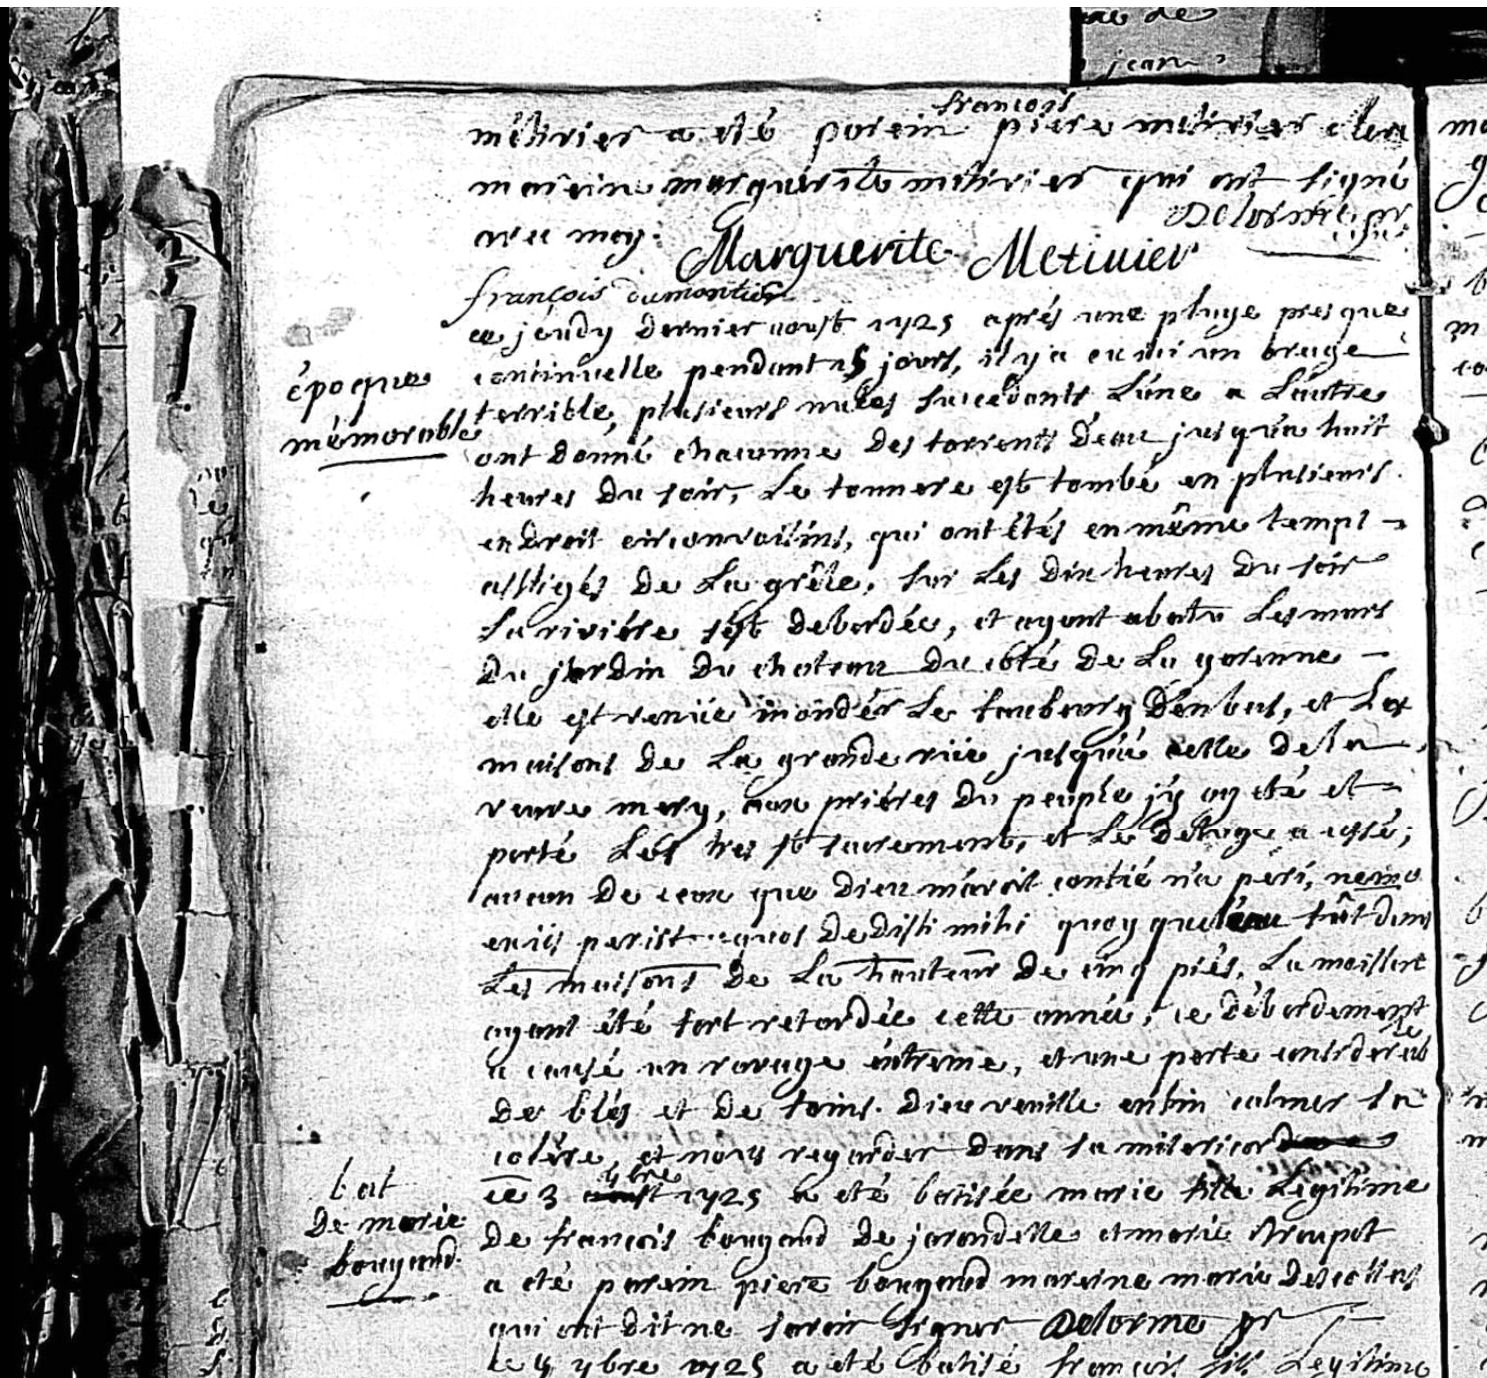 françois
métivier a eté parein piere métivier et la
mareine marguerite métivier qui ont signé
avec moy. Delorme pr
Marguerite Metiuier
françois dumontier
ce jeudy dernier aoust 1725 aprés une pluye presque
continuelle pendant 15 jours, il y a eu un orage
époque
mémorable
terrible, plusieurs nuées succedants L'une a L'autre
ont donné chacunne des torrents d'eau jusqu'a huit
heures du soir, Le tonnere est tombé en plusieurs
endroit circonvoisins, qui ont étés en même temps
affligés de La grêle, sur Les dix heures du soir
La riviére s'est debordée, et ayant abatu Les murs
du jardin du chateau du côté de La garenne
elle est venüe inonder Le faubourg d'enbas, et Les
maisons de La grande rüe jusqu'a celle de la
veuve mery, aux priéres du peuple j'y ay eté et
porté Les tres st sacrement, et Le deluge a cessé,
aucun de ceux que dieu m'avoit confié n'a péri, nemo
ex iis periit quos dedisti mihi quoy que l'eau fût dans
Les maisons de La hauteur de cinq piés. La moisson
ayant été fort retardée cette année, ce débordement
a causé un ravage éxtreme, et une perte considerable
de blés et de foins. dieu veuille enfin calmer sa
colére et nous regarder dans sa misericorde
bat
de marie
bougaud
ce 3 7bre 1725 a eté batisée marie fille Legitime
de françois bougaud de jarondelle et marie
a eté parein piere bougaud mareine marie descollas
qui ont dit ne savoir signer Delorme pr
le 4 7bre 1725 a eté batisé françois fils Legitime